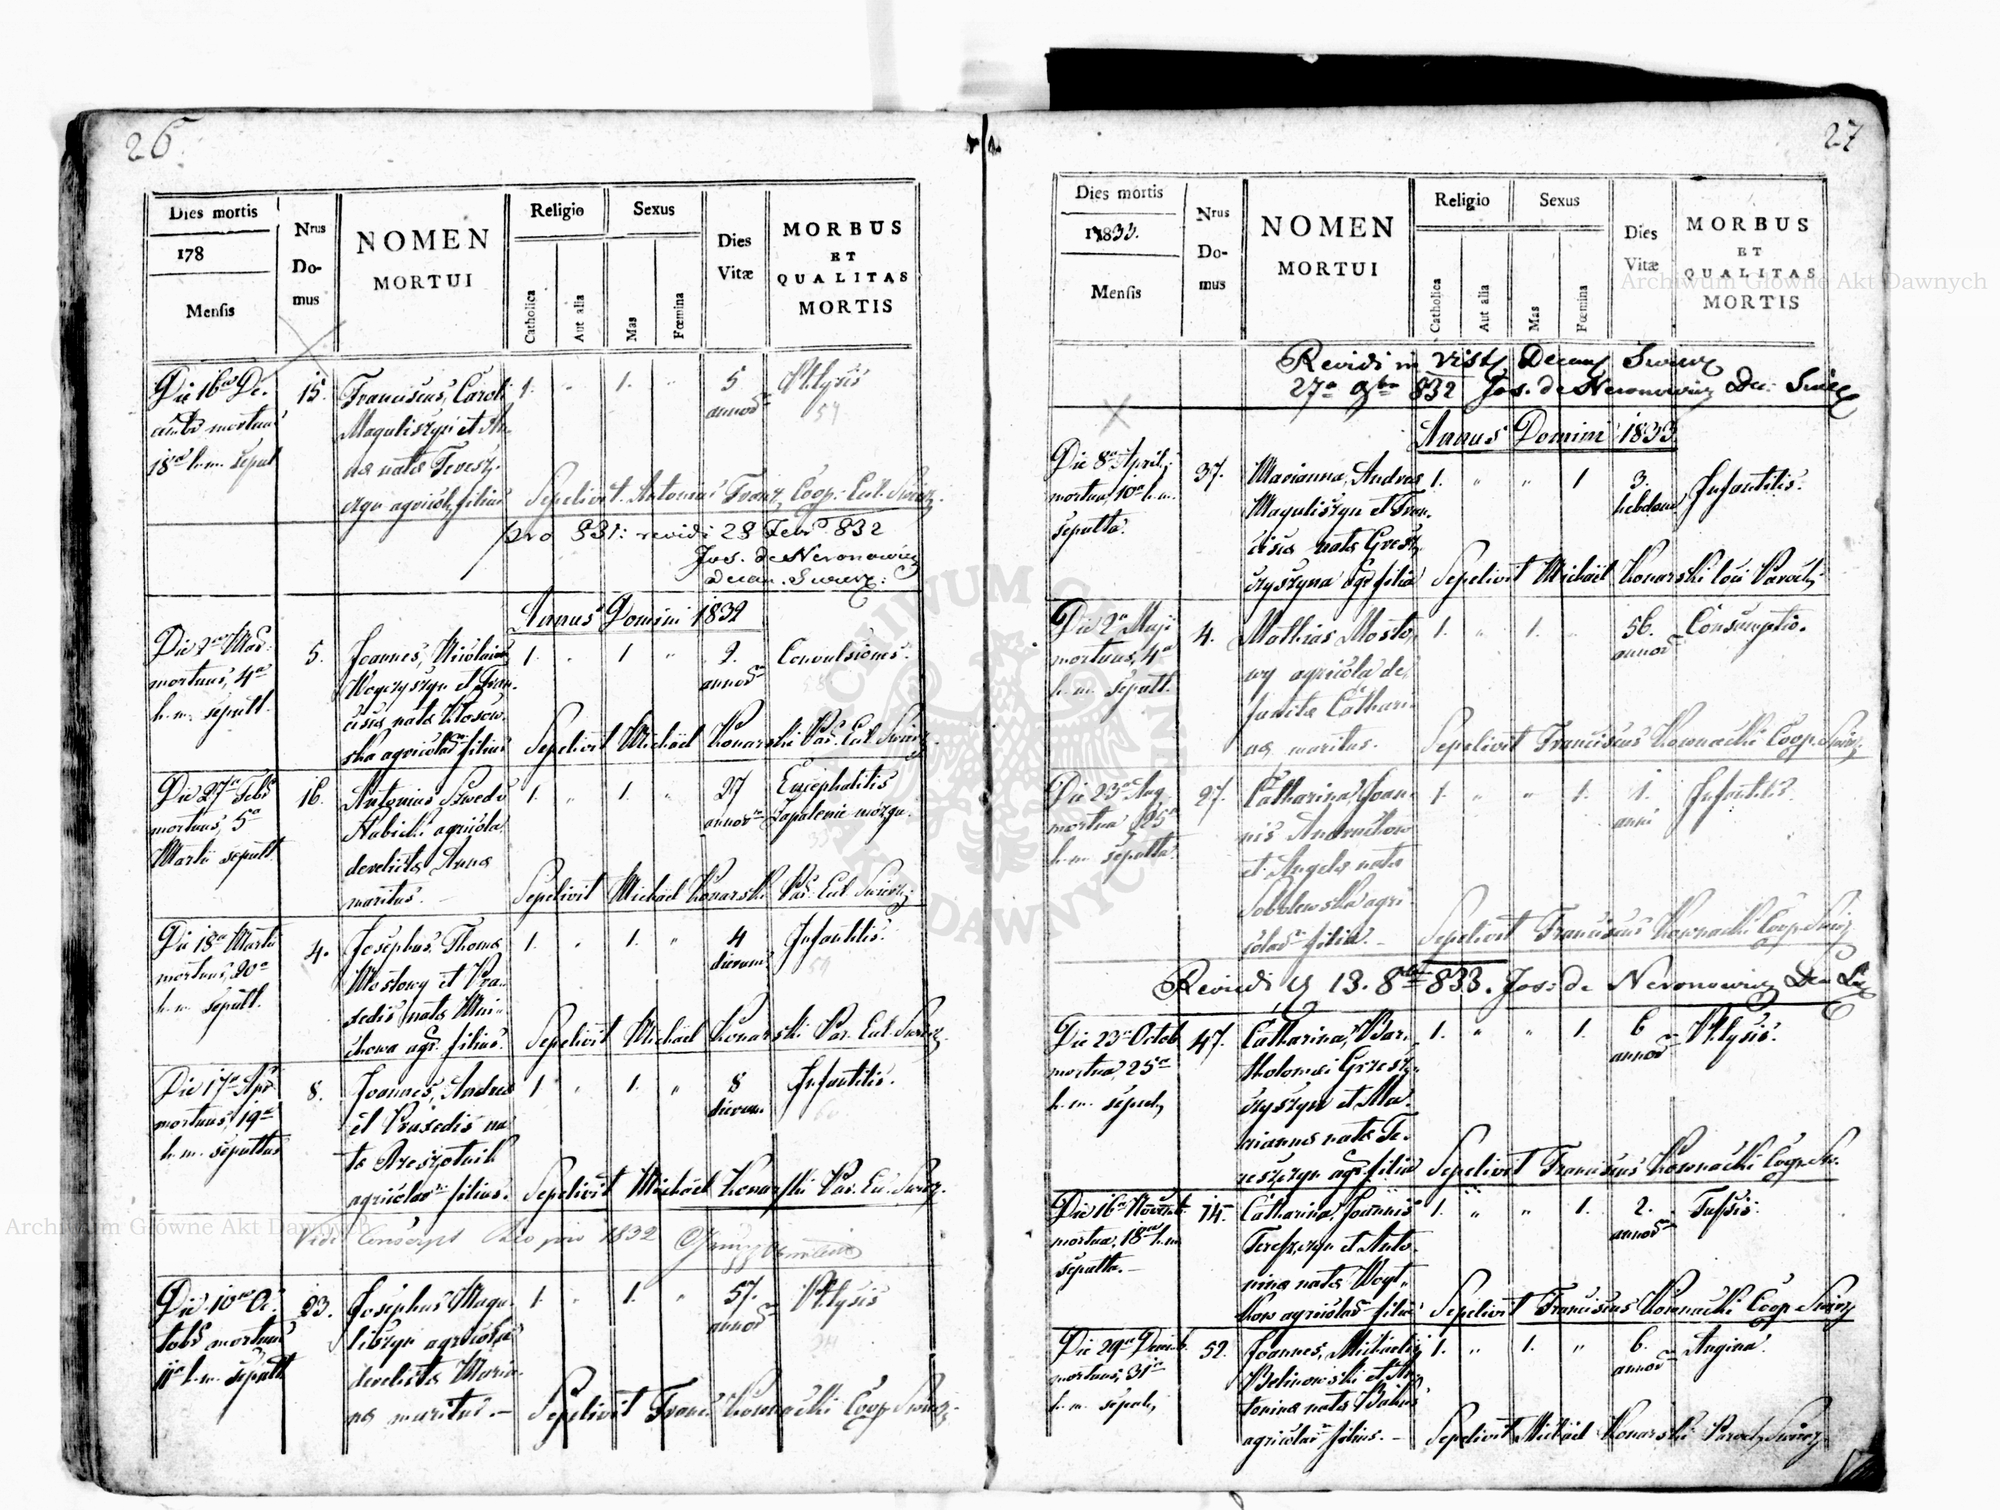 26
Dies mortis
178
Mensis
Nrus
Do-
mus
NOMEN
MORTUI
Religio
Catholica
Aut alia
Sexus
Mas
Fœmina
Dies
Vitæ
MORBUS
ET
QUALITAS
MORTIS
Die 16a De-
mortuus
18a h. m. sepul
15.
Franciscus, Caroli
Maguliszyn et An-
na nata Teresz-
czyn agricolæ filius
1. " 1. "
5
annor
Phtysis
54
Sepelivit Antonius Coop. Eccl. Swirz.
pro 831: revidi 28 Febr 832
Jos. de Neronowicz
Decan. Swirz:
Annus Domini 1832
Die 2a Mar.
mortuus, 4a
h. m. sepult.
5.
Joannes, Nicolai
et Fran-
cisca nata Kłosow-
ska agricolar filius
1. " 1 "
2.
annor
Convulsiones.
Sepelivit Michael Konarski Par. Eccl. Swirz.
Die 27a Febr
mortuus, 5a
Martii sepult.
16.
Antonius Szwed v
Rabicki agricola
derelicta Anna
maritus. -
1. " 1. "
27
annor
Encephalitis
Zapalenie mózgu.
Sepelivit Michael Konarski Par. Eccl. Swirz.
Die 18a Martii
mortuus, 20a
h. m. sepult.
4.
Josephus, Thoma
Mostowy et Pra-
xedis nata Mni-
chowa agr. filius.
1. " 1. "
4
dierum
Infantilis.
59
Sepelivit Michael Konarski Par. Eccl. Swirz.
Die 17a Apr
mortuus, 19a
h. m. sepultus
8.
Joannes, Andrea
et Praxedis na-
ta
agricolar filius.
1 " 1. "
8
dierum
Infantilis.
60
Sepelivit Michael Konarski Par. Ec. Swirz.
Vide Conscript pro 1832
Die 10a Oc-
tobr mortuus
11a h. m. sepult
23.
Josephus Magu-
liszyn agricola
derelicta Maria-
na maritus. -
1. " 1. "
57.
annor
Phtysis
Sepelivit Franc. Kownacki Coop. Swirz.
27
Dies mortis
1833.
Mensis
Nrus
Do-
mus
NOMEN
MORTUI
Religio
Catholica
Aut alia
Sexus
Mas
Fœmina
Dies
Vitæ
MORBUS
ET
QUALITAS
MORTIS
Revidi in Decan Swirz
27a 9bris 832 Jos. de Neronowicz Dec. Swirz
Annus Domini 1833
Die 8a Aprilis
mortua, 10a h. m.
sepulta.
37.
Marianna, Andrea
Maguliszyn et Fran-
cisca nata Grest-
czyszyna agr filia
1. " " 1
3.
hebdom
Infantilis.
Sepelivit Michael Konarski loci Paroch.
Die 2a Maji
mortuus, 4a
h. m. sepult.
4.
Mathias Mosto-
wy agricola de-
functæ Cathari-
næ maritus.
1. " 1. "
56.
annor
Consumptio.
Sepelivit Franciscus Kownacki Coop. Swirz.
Die 23a Aug
mortua, 25a
h. m. sepulta.
27.
Catharina, Joan-
nis Andrachow
et Angela nata
Sobolewska agri-
colar filia. -
1. " " 1.
1.
anni
Infantilis
Sepelivit Franciscus Kownacki Coop. Swirz.
Revidi 13. 8bris 833. Jos: de Neronowicz Dec
Die 23a Octob
mortua, 25a
h. m. sepul,
47.
Catharina, Bar-
tholomæi Grzesz-
czyszyn et Ma-
rianna nata Te-
reszczyn agr. filia
1. " " 1.
6
annor
Phtysis.
Sepelivit Franciscus Kownacki Coop. Sw.
Die 16a Novemb.
mortua, 18a h. m
sepulta. -
14.
Catharina, Joannis
Tereszczyn et Anto-
nina nata Woyt-
kow agricolar filia
1. " " 1.
2.
annor
Tussis.
Sepelivit Franciscus Kownacki Coop. Swirz
Die 29a Decemb.
mortuus, 31a
h. m. sepul,
52.
Joannes, Michaelis
Belinowski et An-
tonina nata Babiis
agricolar filius. -
1. " 1. "
6.
annor
Angina.
Sepelivit Michael Konarski Paroch. Swirz.
Archiwum Główne Akt Dawnych
Archiwum Główne Akt Dawnych
ARCHIWUM GŁÓWNE AKT DAWNYCH